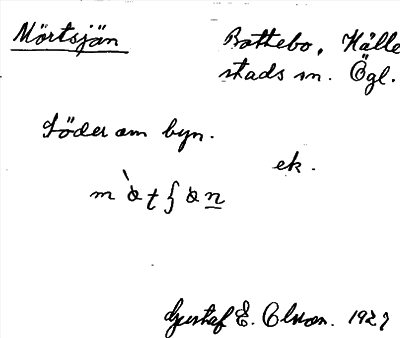 Mörtsjän
Bottebo, Hälle
stads sn. Ögl.
Söder om byn.
ek.
Gustaf E. Olsson. 1927